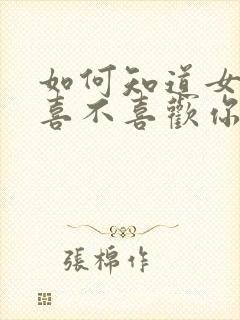 如何知道女
喜不喜歡你
張棉作